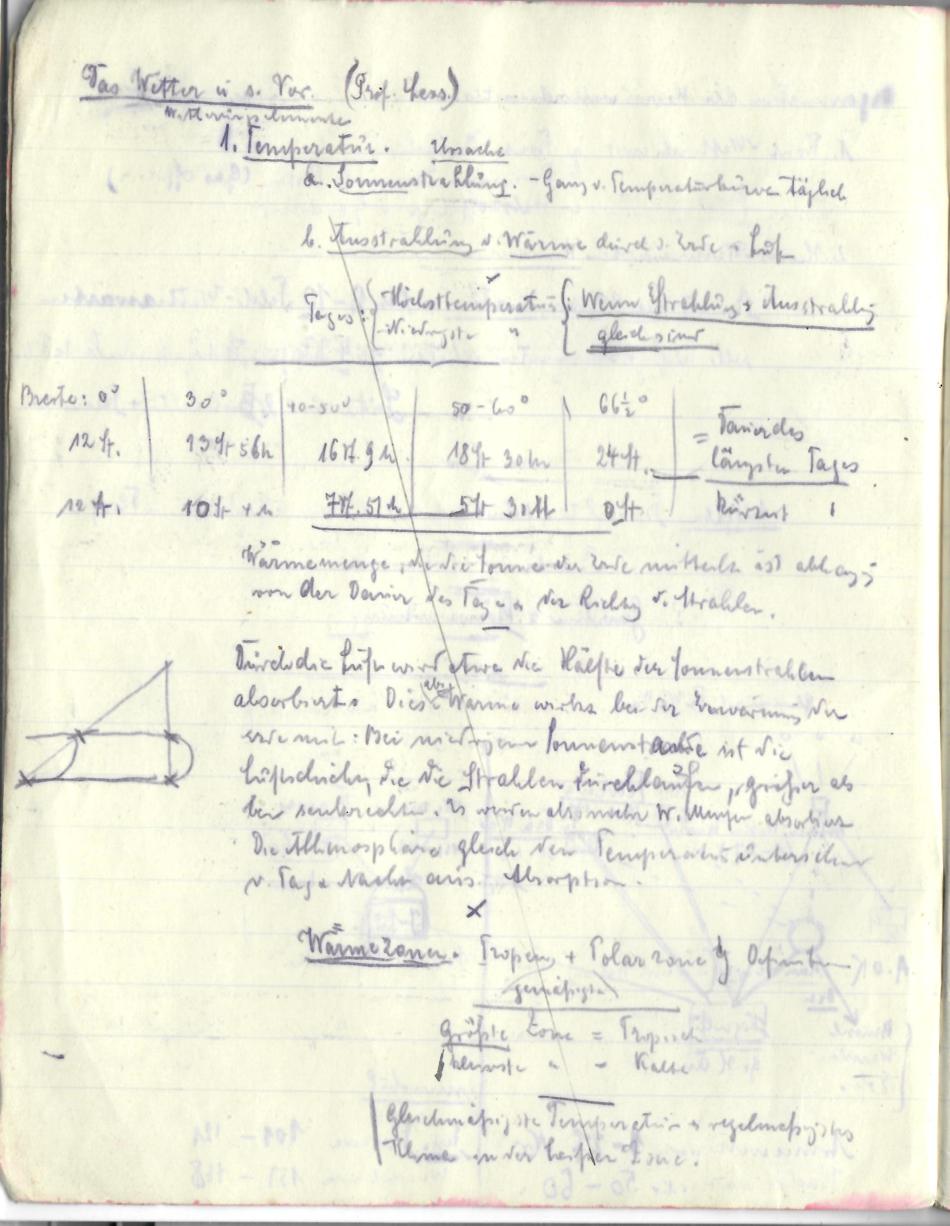 Das Wetter u s. Vor. (Prof. Less.)
Witterungselemente
1. Temperatur. Ursache
a. Sonnenstrahlung. - Gang v. Temperaturkurven täglich
b. Ausstrahlung v. Wärme durch d. Erde + Luft
Tages: { Höchsttemperatur { : Wenn Strahlung + Ausstrahlg
Niedrigste " gleich sind
Breite: 0° 30° 40-50° 50-60° 66½°
12 St. 13 St 56m 16 St. 9 m 18 St 30 m 24 St. = Dauer des
längsten Tages
12 St. 10 St 4 m 7 St. 51 m 5 St 30 M 0 St kürzest "
Wärmemenge, die die Sonne der Erde mitteilt ist abhängig
von der Dauer des Tages + der Richtg d. Strahlen.
Durch die Luft wird etwa die Hälfte der Sonnenstrahlen
absorbiert. Diese abs. Wärme wirkt bei der Erwärmung der
Erde mit: Bei niedrigem Sonnenstande ist die
Luftschicht, die die Strahlen durchlaufen, größer als
bei senkrechten. Es werden also mehr W. Mengen absorbiert
Die Athmosphäre gleich den Temperaturunterschied
v. Tag + Nacht aus. Absorption.
Wärmezonen. Tropen + Polarzone Definition
gemäßigte
Größte Zone = Tropisch
kleinste " - Kalte
Gleichmäßigste Temperatur + regelmäßigstes
Klima in der heißen Zone.